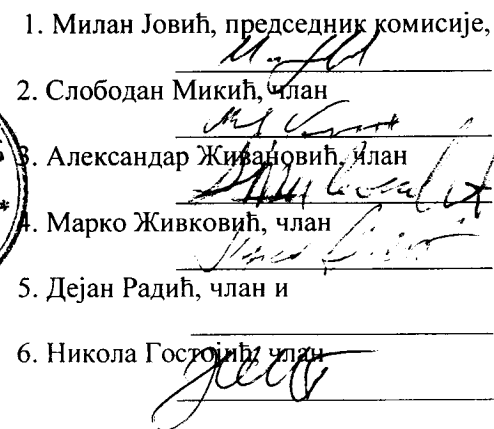 1. Милан Јовић, председник комисије,
2. Слободан Микић, члан
3. Александар Живановић, члан
4. Марко Живковић, члан
5. Дејан Радић, члан и
6. Никола Гостојић, члан